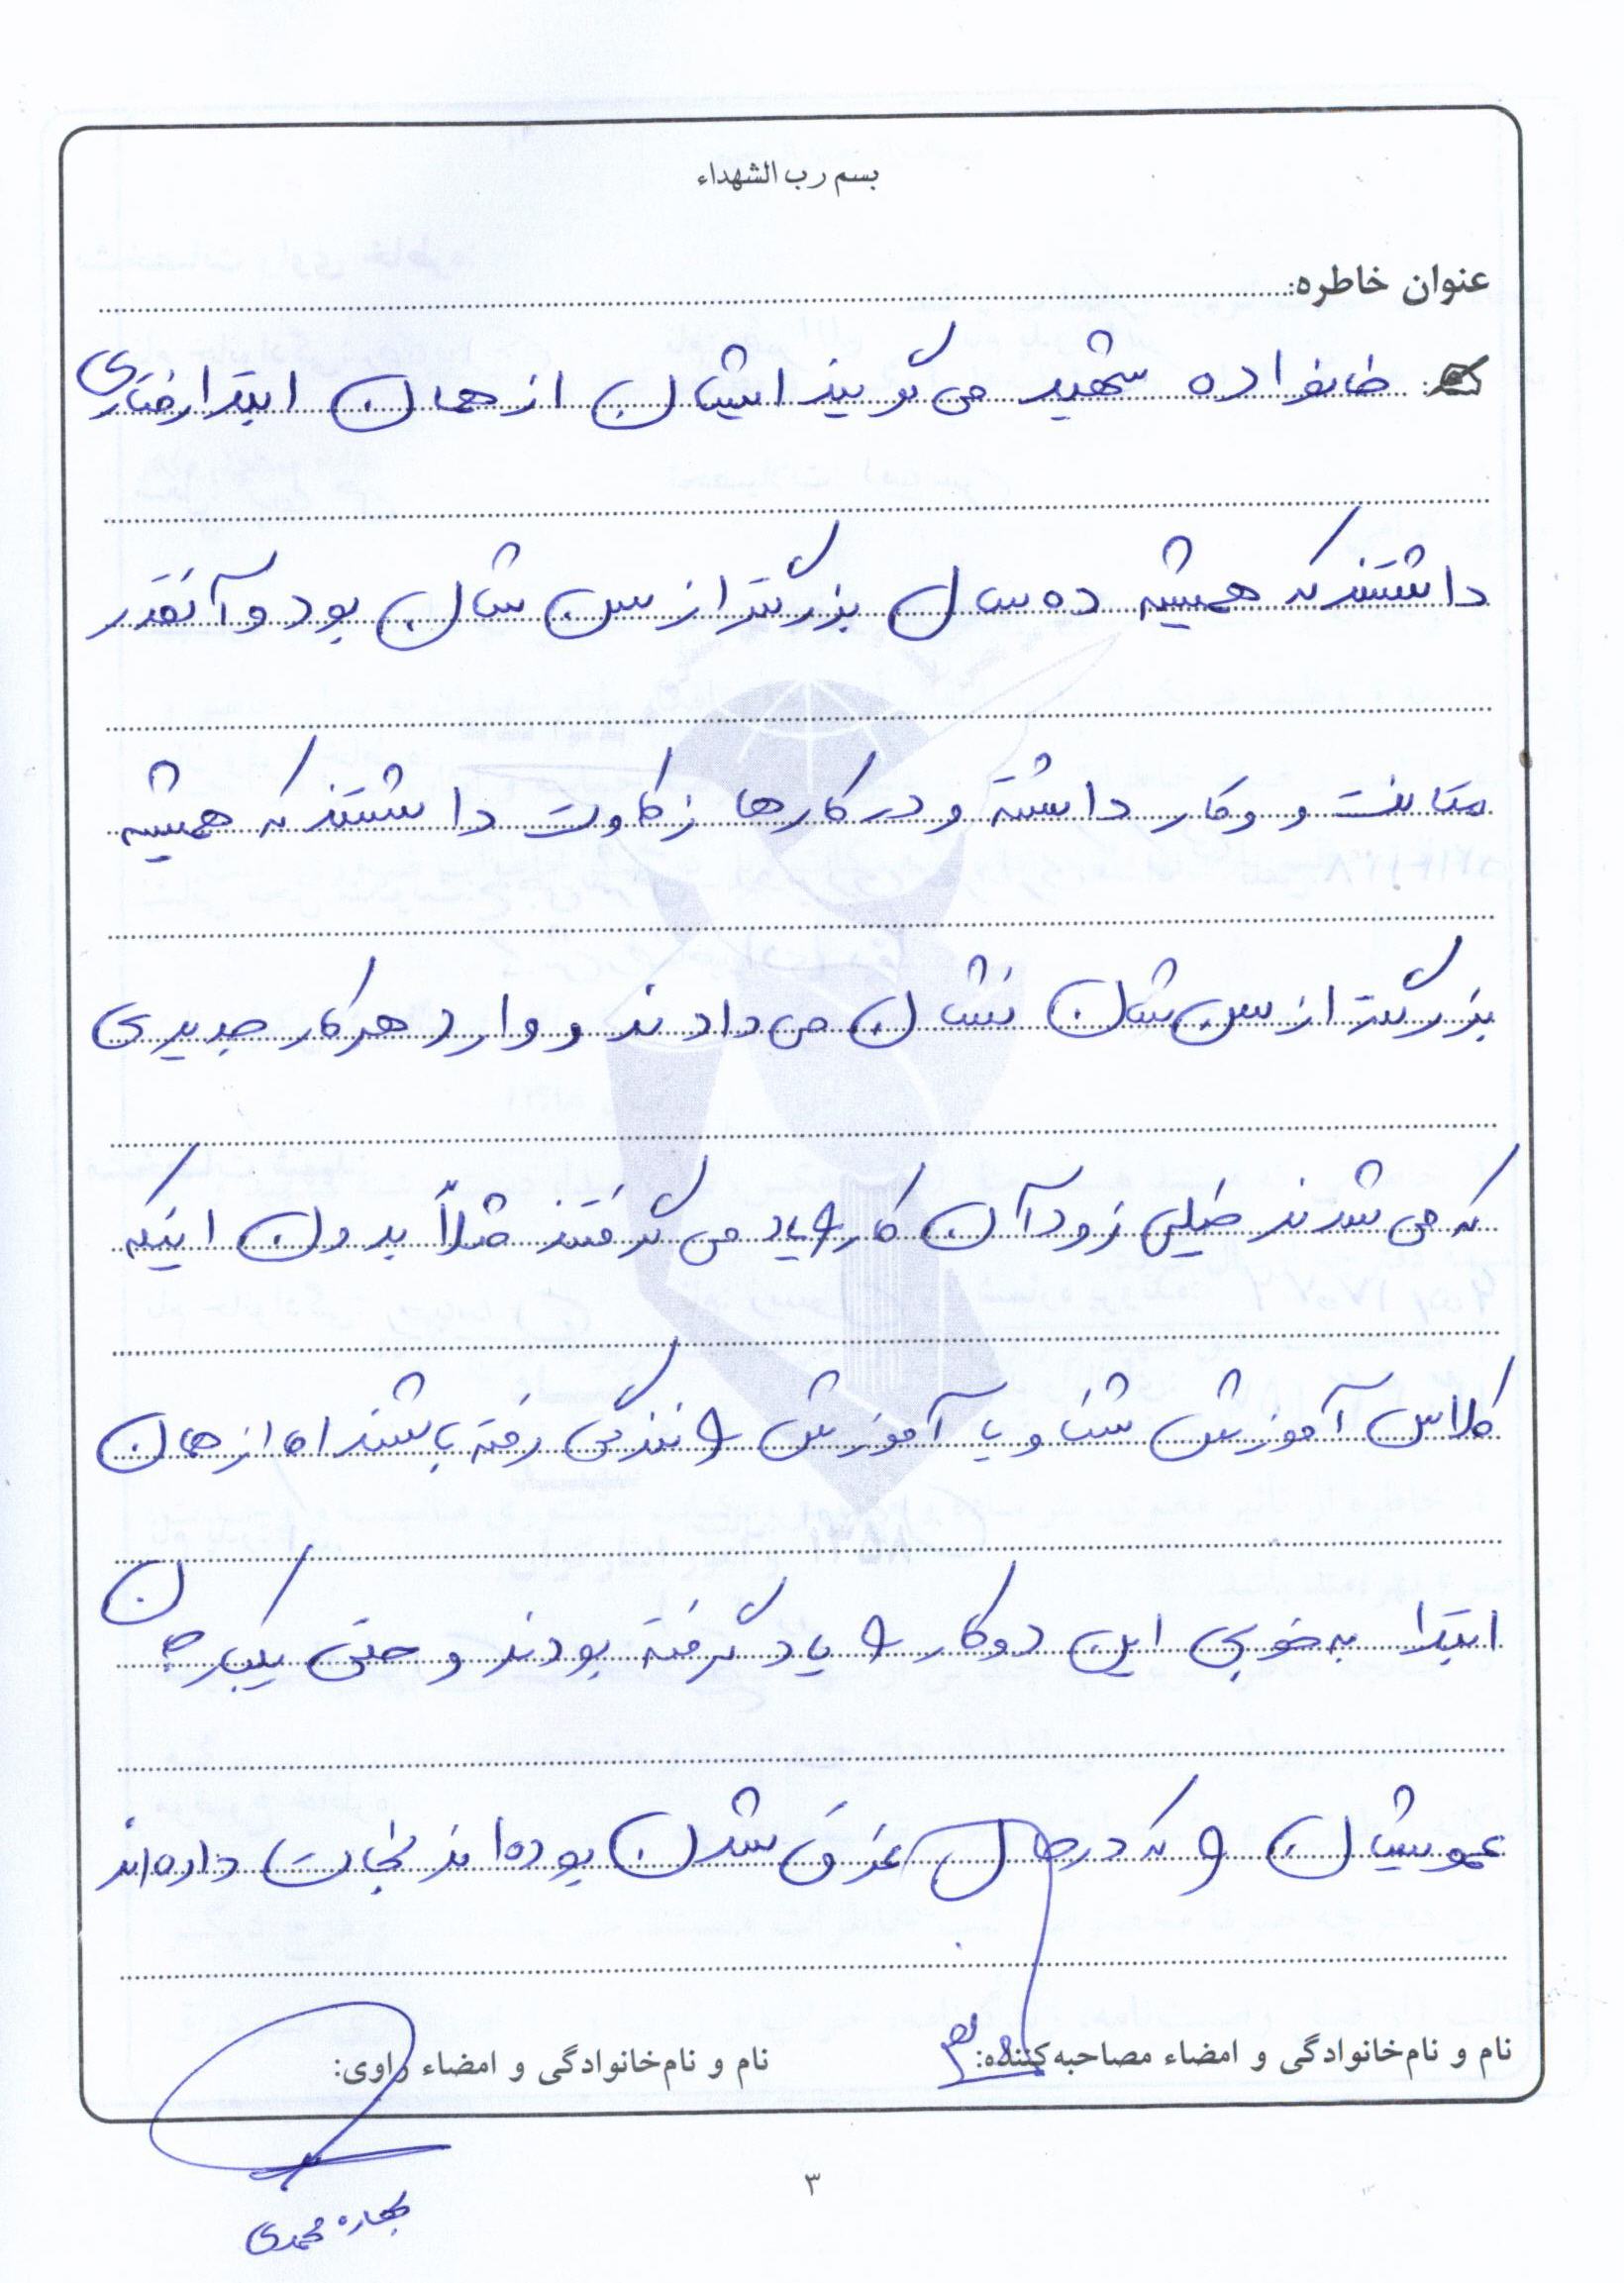 بسم رب الشهداء
عنوان خاطره:
خانواده شهید می گویند ایشان از همان ابتدا رفتاری
داشتند که همیشه ده سال بزرگتر از سن شان بود و آنقدر
متانت و وقار داشته و در کارها زکاوت داشتند که همیشه
بزرگتر از سن شان نشان می دادند و وارد هر کار جدیدی
که می شدند خیلی زود آن کار را یاد می گرفتند مثلاً بدون اینکه
کلاس آموزش شنا و یا آموزش رانندگی رفته باشند اما از همان
ابتدا به خوبی این دو کار را یاد گرفته بودند و حتی یکبار
عمویشان را که در حال غرق شدن بوده اند نجات داده اند
نام و نام‌خانوادگی و امضاء مصاحبه‌کننده:
نام و نام‌خانوادگی و امضاء راوی:
بهاره محمدی
۳